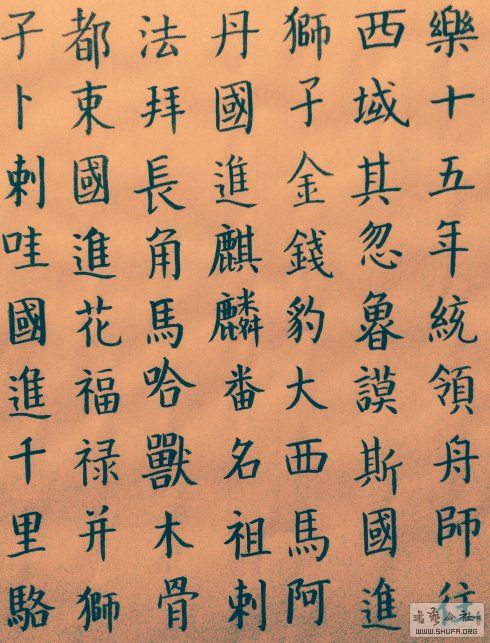 樂十五年統領舟師往
西域其忽魯謨斯國進
獅子金錢豹大西馬阿
丹國進麒麟番名祖刺
法拜長角馬哈獸木骨
都束國進花福禄并獅
子卜刺哇國進千里駱
WWW.SHUFA.ORG